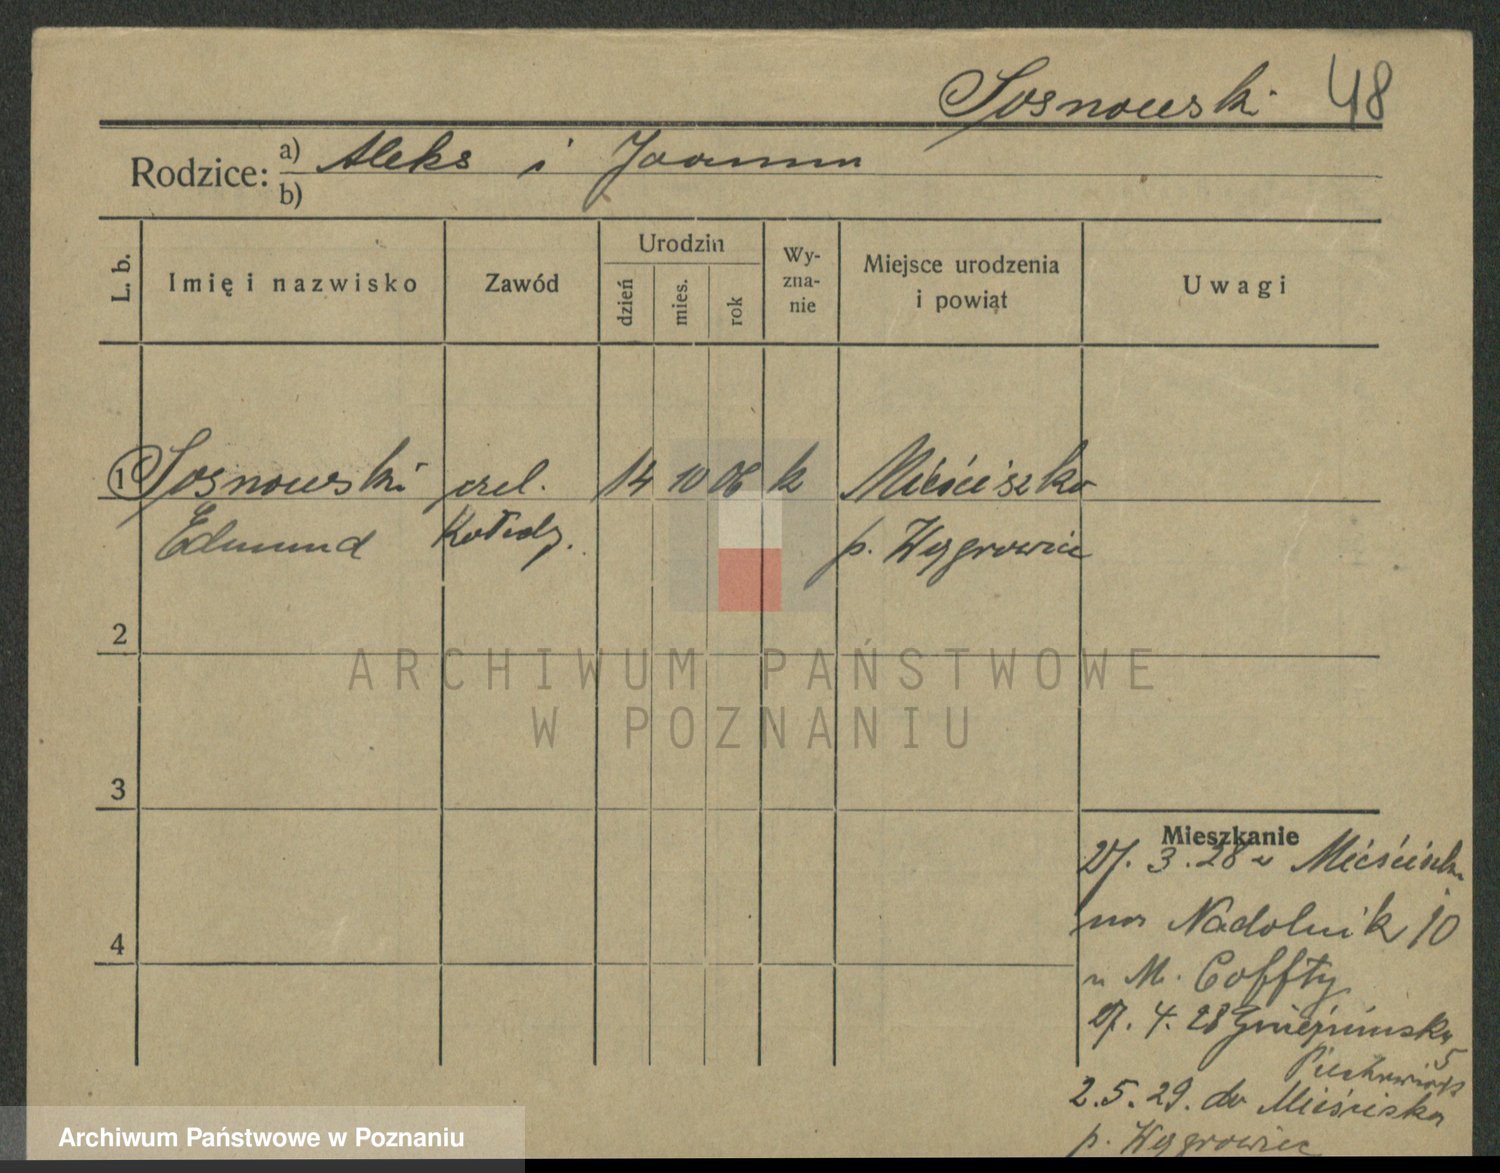 Sosnowski 48
Rodzice: a) Aleks i Joanna
b)
L. b.
Imię i nazwisko
Zawód
Urodzin
dzień
mies.
rok
Wy-
zna-
nie
Miejsce urodzenia
i powiąt
Uwagi
1 Sosnowski czel. 14 10 06 k Mieściszko
Edmund Kołodz. p. Wągrowiec
2
ARCHIWUM PAŃSTWOWE
W POZNANIU
3
Mieszkanie
27. 3. 28 z
4
na Nadolnik 10
u M.
27. 4. 28 Gnieźnieńska
5
2.5.29. do Mieścisko
p. Wągrowiec
Archiwum Państwowe w Poznaniu